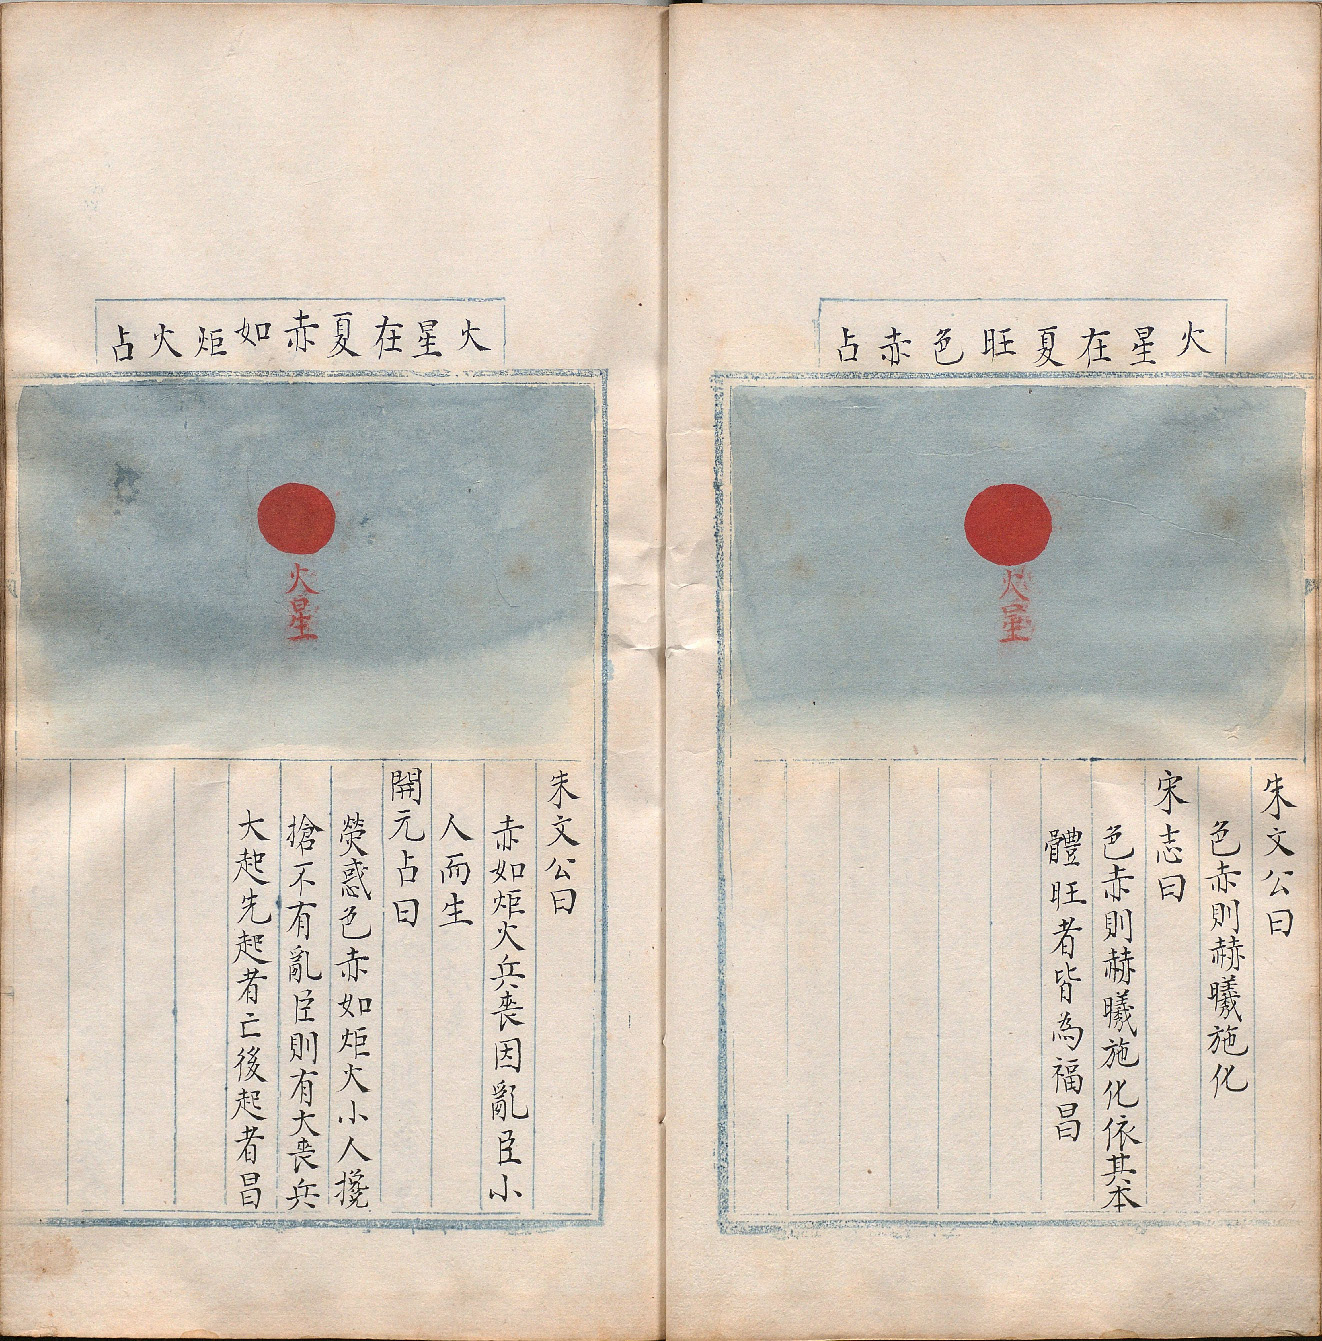 火星在夏旺色赤占
火星
朱文公曰
色赤則赫曦施化
宋志曰
色赤則赫曦施化依其本
體旺者皆為福昌
火星在夏赤如炬火占
火星
朱文公曰
赤如炬火兵喪因亂臣小
人而生
開元占曰
熒惑色赤如炬火小人攙
搶不有亂臣則有大喪兵
大起先起者亡後起者昌